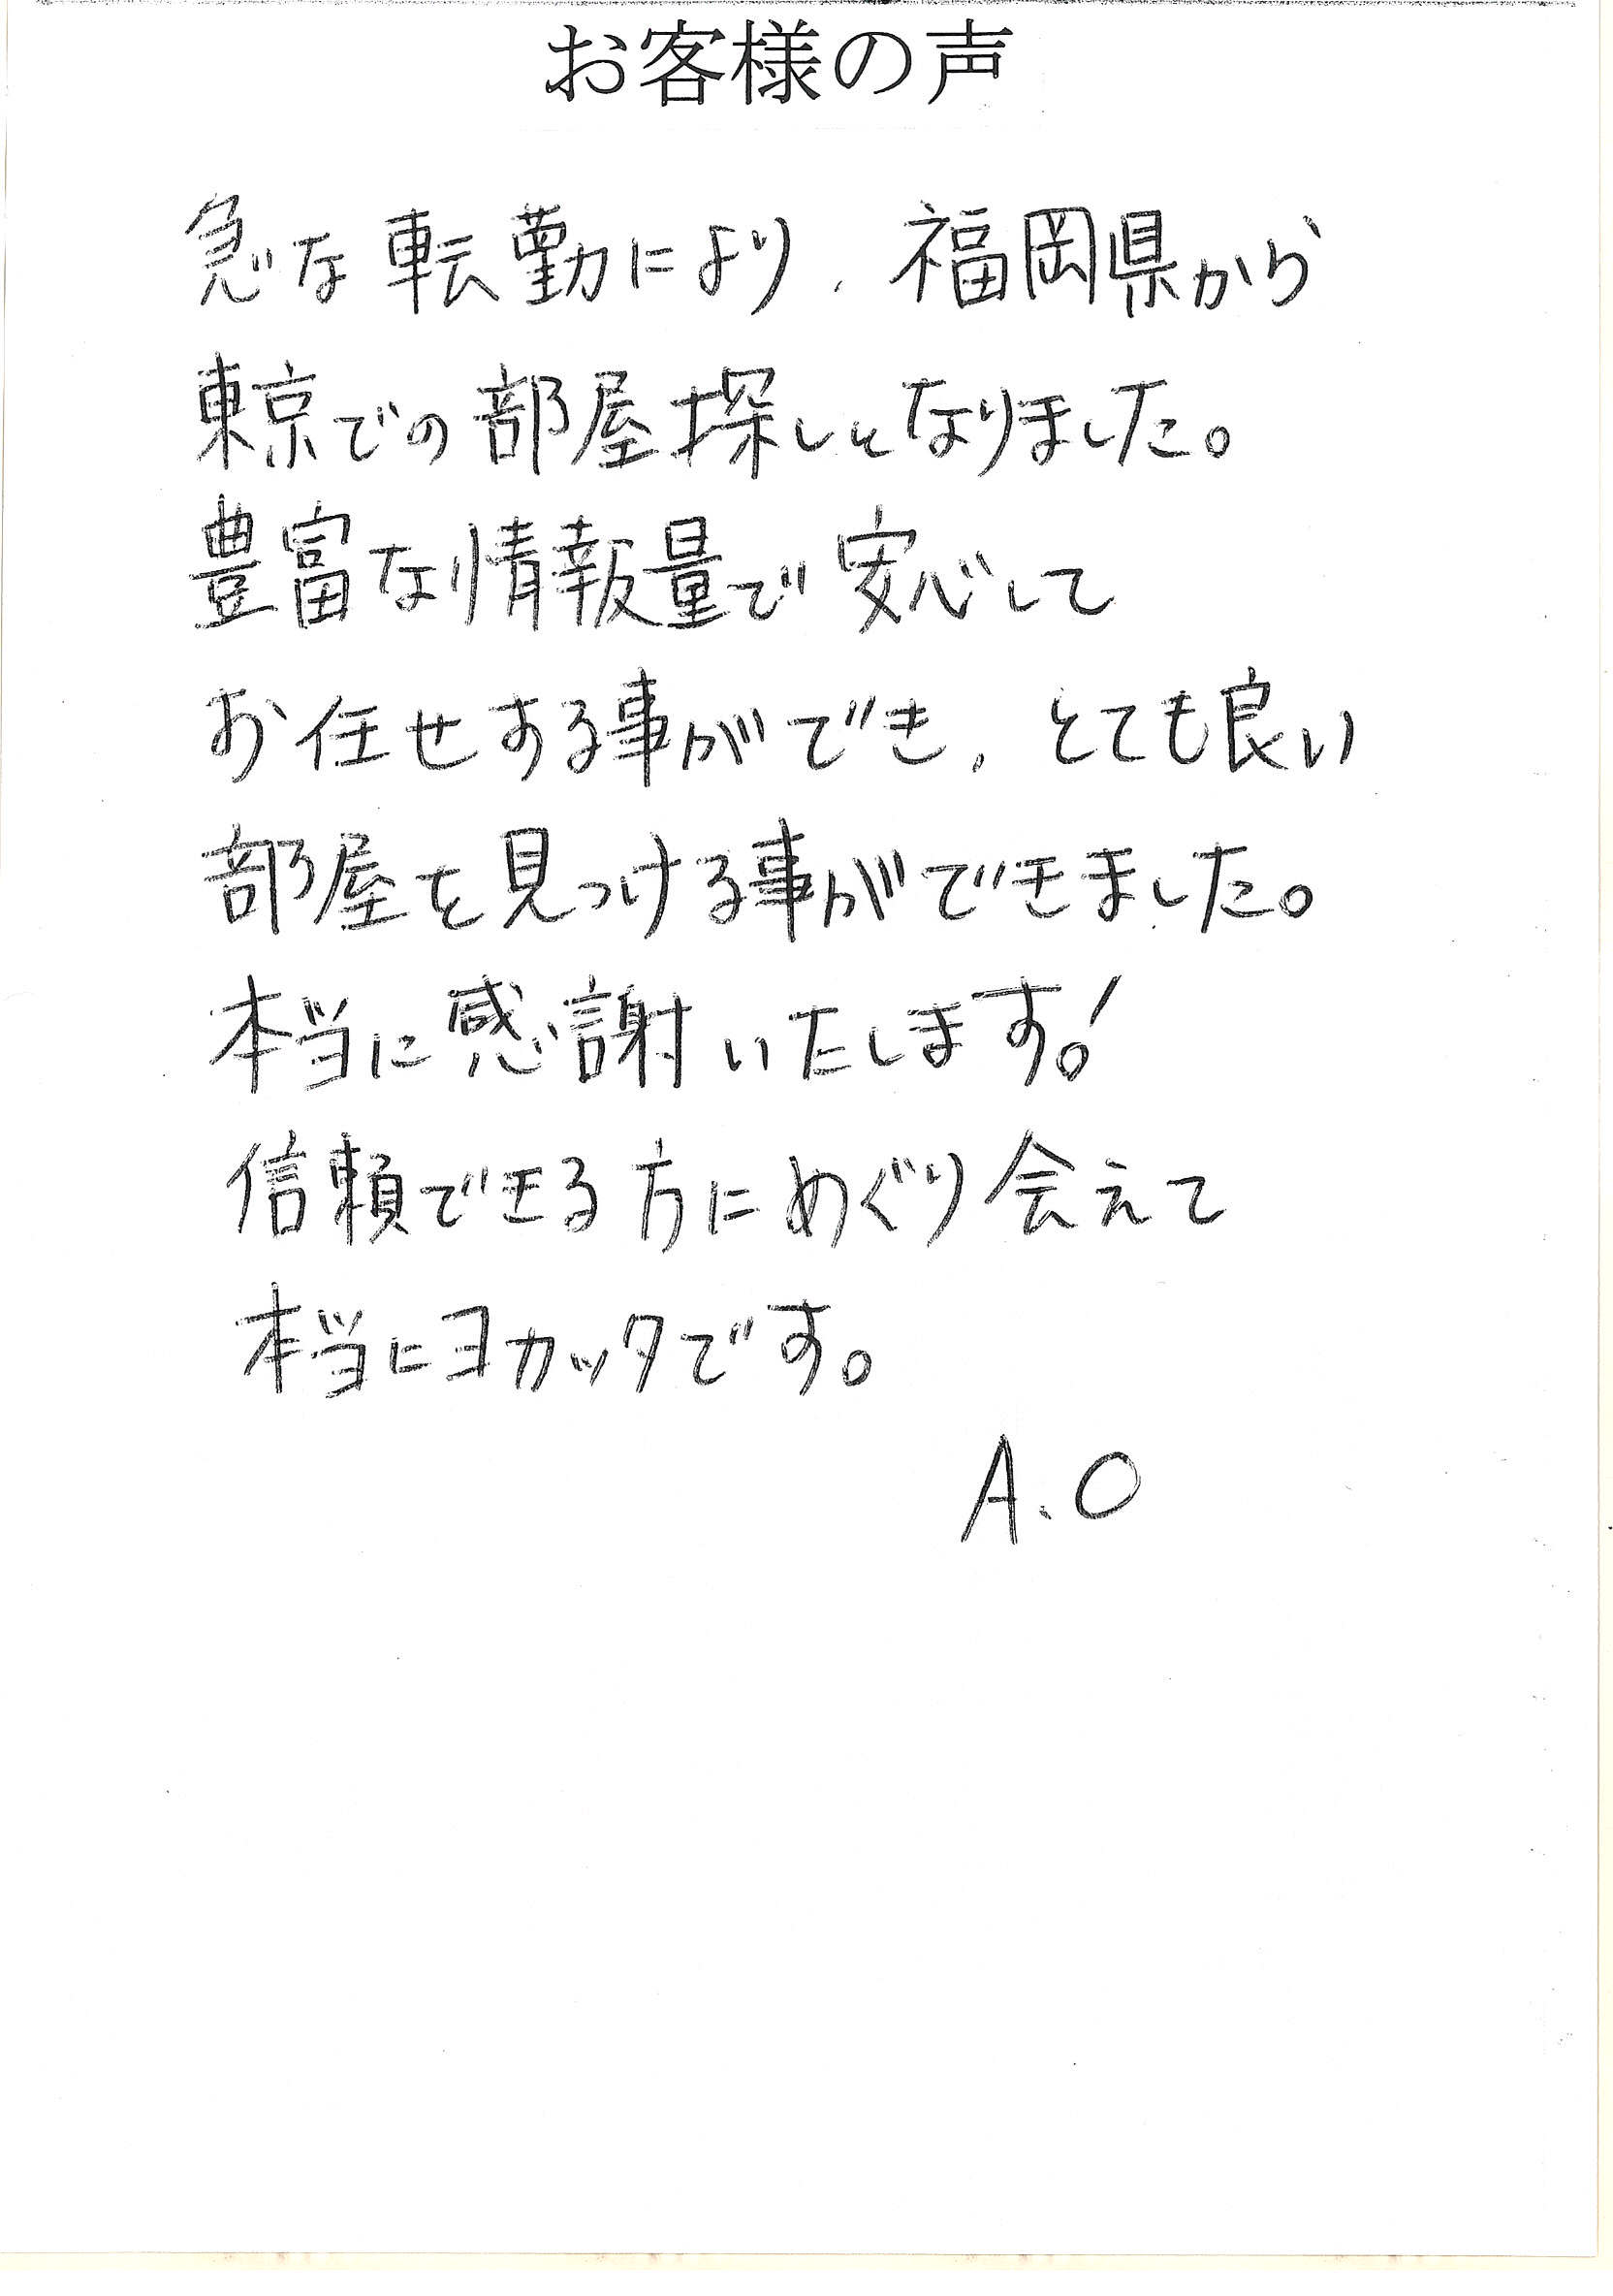 お客様の声
急な転勤により、福岡県から
東京での部屋探しとなりました。
豊富な情報量で安心して
お任せする事ができ、とても良い
部屋を見つける事ができました。
本当に感謝いたします!
信頼できる方にめぐり会えて
本当にヨカッタです。
A.O